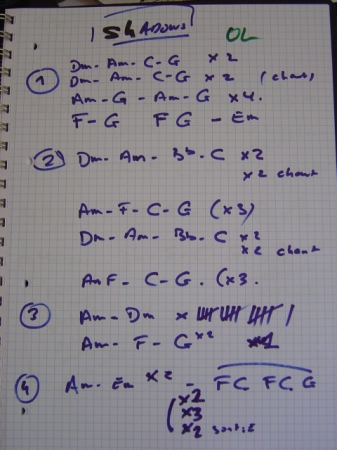 Shadows OL
1 Dm - Am - C - G x2
Dm - Am - C - G x2 (chant)
Am - G - Am - G x4.
F - G F G - Em
2 Dm - Am - Bb - C x2
x2 chant
Am - F - C - G (x3)
Dm - Am - Bb - C x2
x2 chant
Am F - C - G. (x3.
3 Am - Dm x
Am - F - G x2
4 Am - Em x2 - FC FC G
x2
x3
x2 sortie